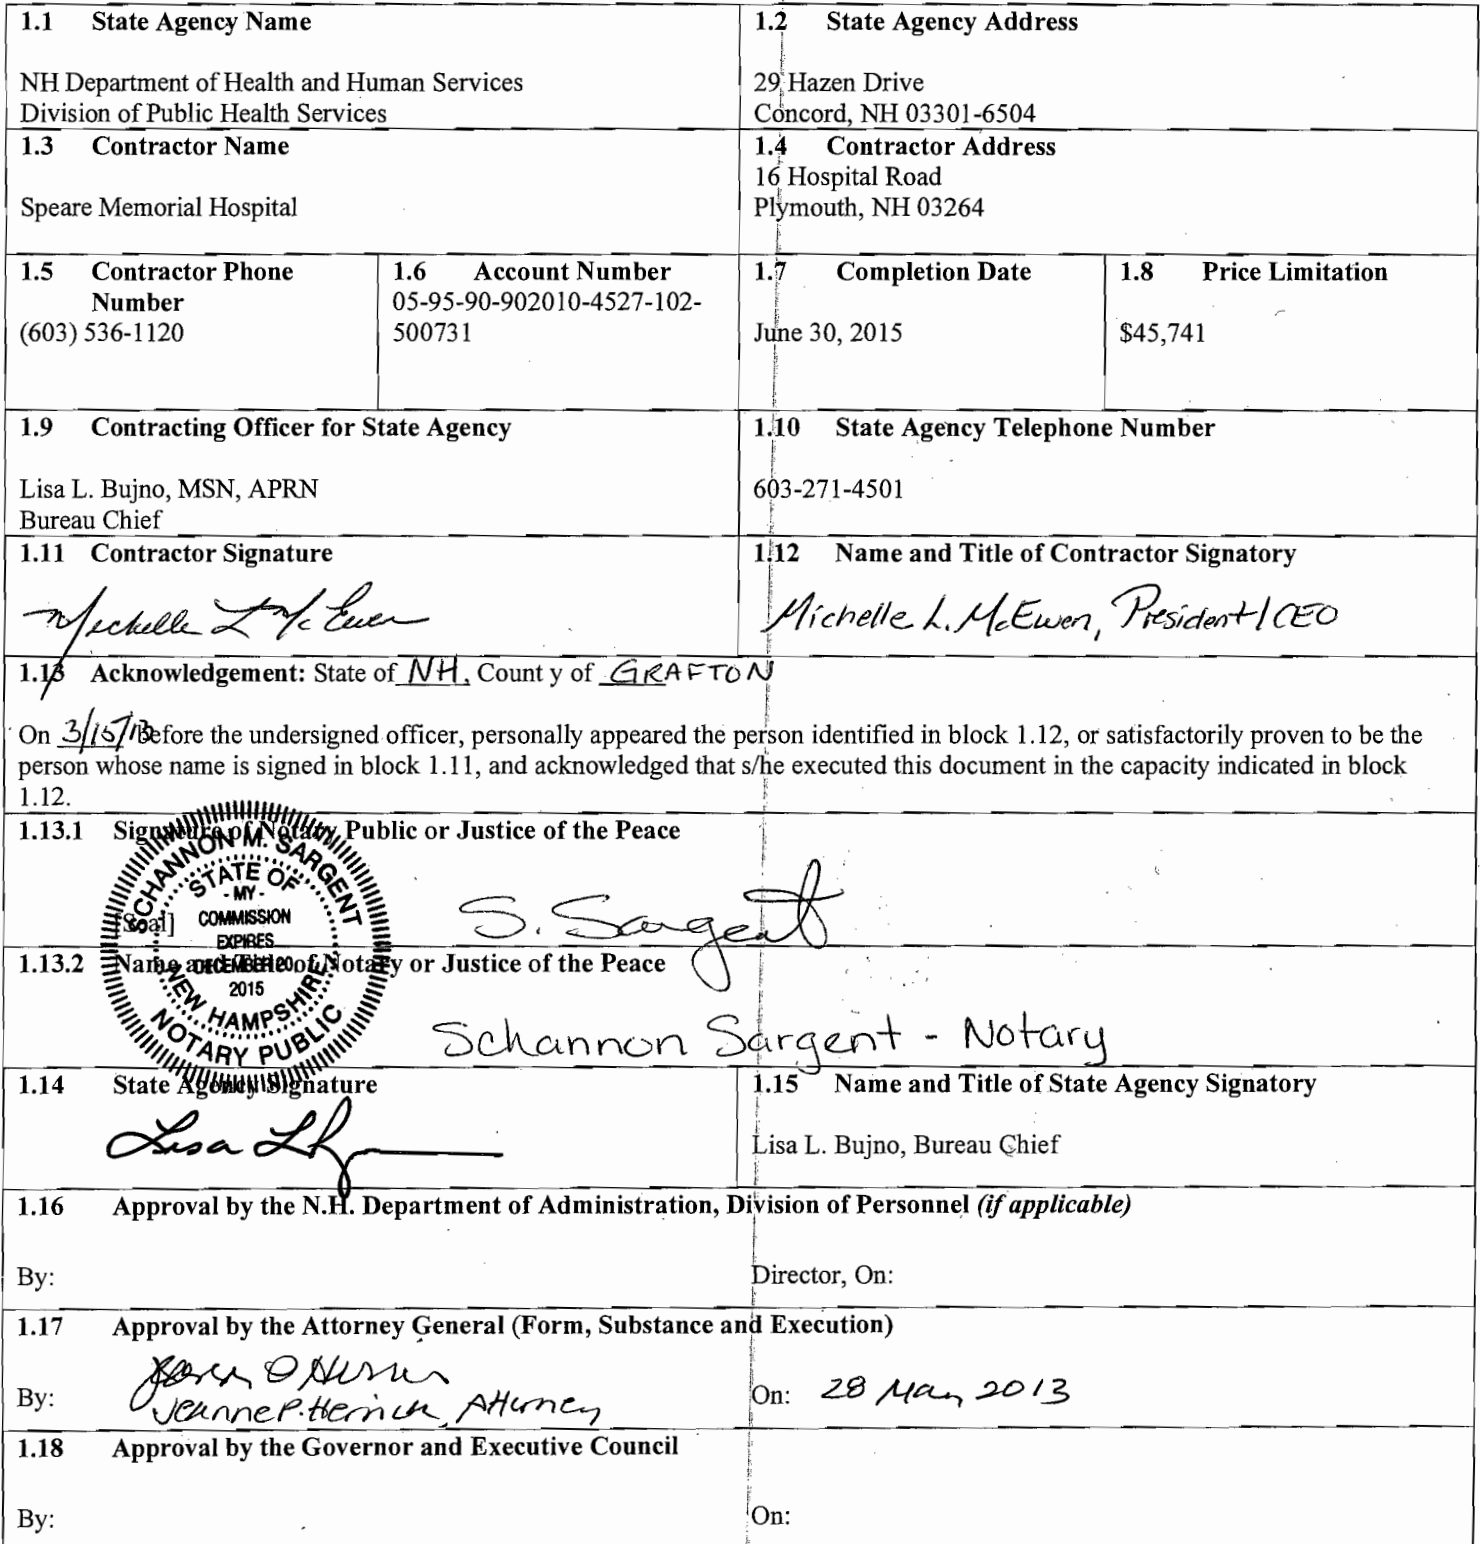 1.1 State Agency Name
NH Department of Health and Human Services
Division of Public Health Services
1.2 State Agency Address
29 Hazen Drive
Concord, NH 03301-6504
1.3 Contractor Name
Speare Memorial Hospital
1.4 Contractor Address
16 Hospital Road
Plymouth, NH 03264
1.5 Contractor Phone
Number
(603) 536-1120
1.6 Account Number
05-95-90-902010-4527-102-
500731
1.7 Completion Date
June 30, 2015
1.8 Price Limitation
$45,741
1.9 Contracting Officer for State Agency
Lisa L. Bujno, MSN, APRN
Bureau Chief
1.10 State Agency Telephone Number
603-271-4501
1.11 Contractor Signature
Michelle L McEwen
1.12 Name and Title of Contractor Signatory
Michelle L. McEwen, President/CEO
1.13 Acknowledgement: State of NH, Count y of GRAFTON
On 3/15/13 before the undersigned officer, personally appeared the person identified in block 1.12, or satisfactorily proven to be the
person whose name is signed in block 1.11, and acknowledged that s/he executed this document in the capacity indicated in block
1.12.
1.13.1 Signature of Notary Public or Justice of the Peace
[Seal]
S. Sargent
SCHANNON M. SARGENT
STATE OF
- MY -
COMMISSION
EXPIRES
DECEMBER 20
2015
NEW HAMPSHIRE
NOTARY PUBLIC
1.13.2 Name and Title of Notary or Justice of the Peace
Schannon Sargent - Notary
1.14 State Agency Signature
Lisa L
1.15 Name and Title of State Agency Signatory
Lisa L. Bujno, Bureau Chief
1.16 Approval by the N.H. Department of Administration, Division of Personnel (if applicable)
By:
Director, On:
1.17 Approval by the Attorney General (Form, Substance and Execution)
By:
Jeanne P. Herrick, Attorney
On: 28 May 2013
1.18 Approval by the Governor and Executive Council
By:
On: